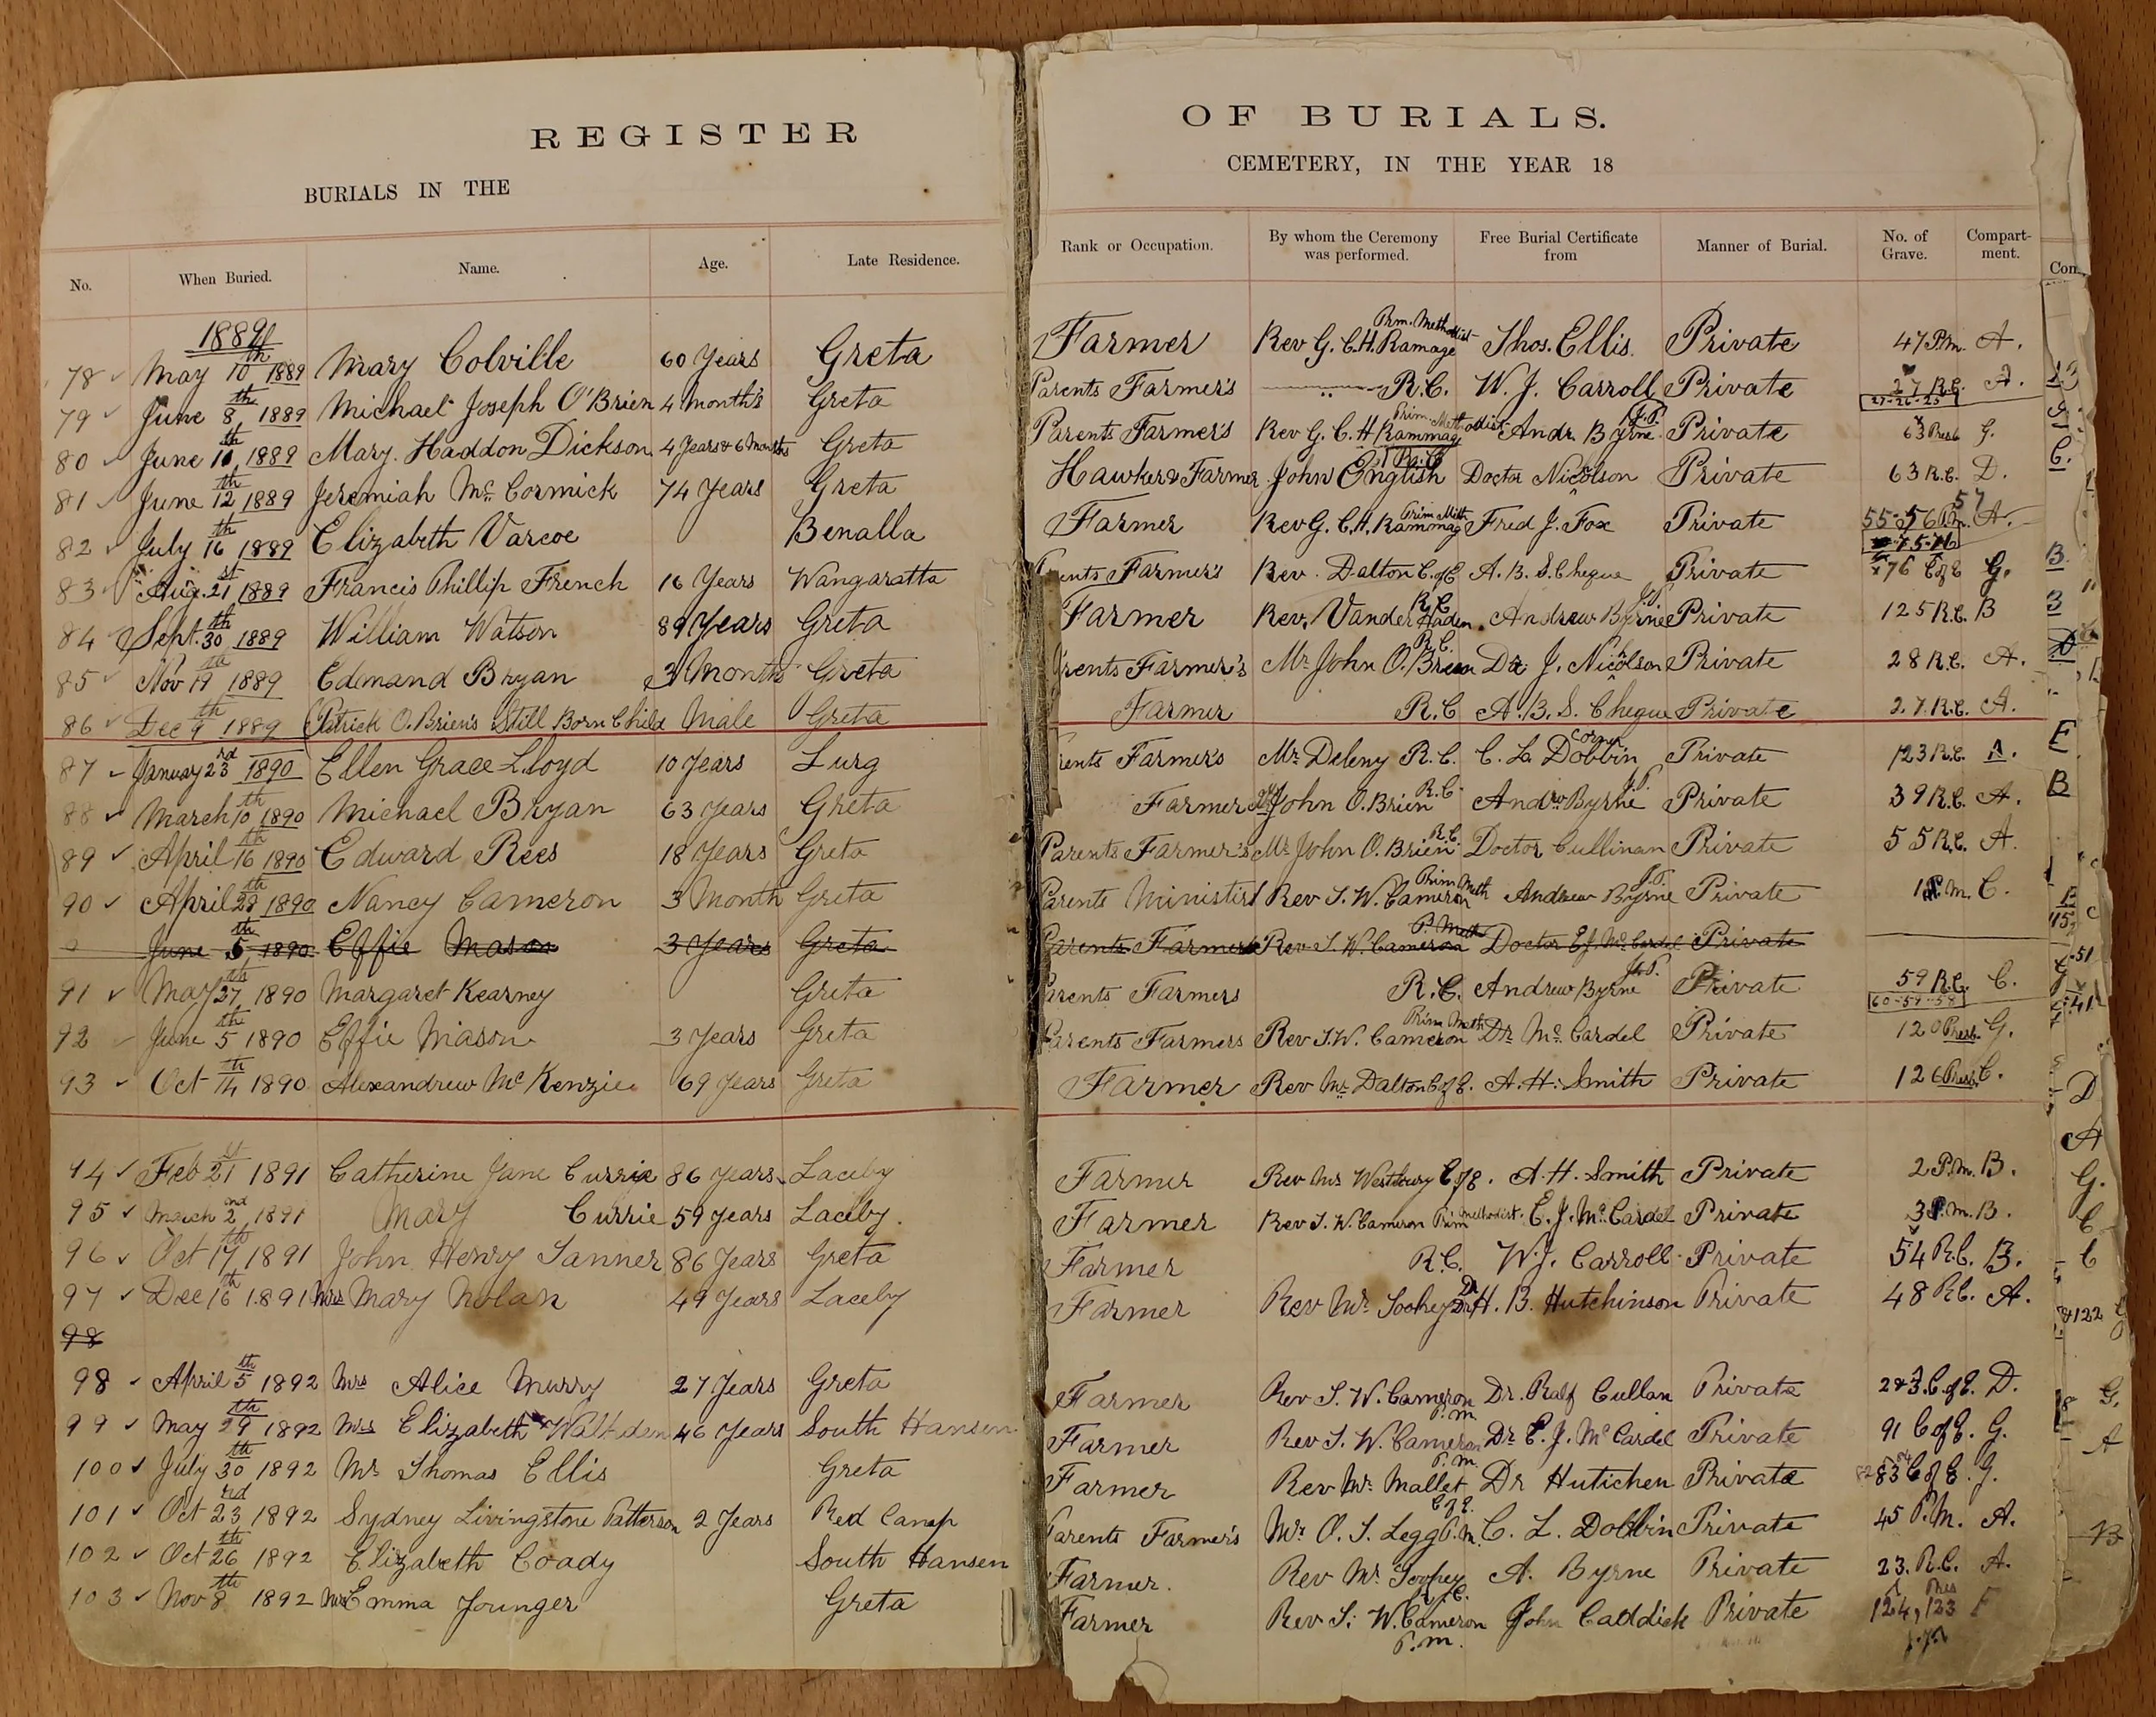 REGISTER OF BURIALS.
BURIALS IN THE CEMETERY, IN THE YEAR 18
No. When Buried. Name. Age. Late Residence. Rank or Occupation. By whom the Ceremony was performed. Free Burial Certificate from Manner of Burial. No. of Grave. Compart-ment.
1889
78 May 10th 1889 Mary Colville 60 Years Greta Farmer Rev G. C. H. Ramage Prm. Methodist Thos. Ellis. Private 47 P.m. A.
79 June 8th, 1889 Michael Joseph O'Brien 4 Month's Greta Parents Farmer's R.C. W. J. Carroll Private 27 R.C. A.
27-26-25
80 June 10th, 1889 Mary. Haddon Dickson 4 Years & 6 Months Greta Parents Farmer's Rev G. C. H Rammag Prim. Methodist Andr. Byrne J.P. Private 63 Presb G.
81 June 12th 1889 Jeremiah Mc. Cormick 74 Years Greta Hawker & Farmer John English Doctor Nicolson Private 63 R.C. D.
82 July 16th 1889 Elizabeth Varcoe Benalla Farmer Rev G. C. H. Rammag Prim Meth Fred J. Fox Private 55-56 57 P.m. A.
83 Aug. 21st 1889 Francis Phillip French 16 Years Wangaratta Parents Farmer's Rev. Dalton C. of E A. B. S. Cheque Private 76 C of E G.
84 Sept. 30th 1889 William Watson 89 Years Greta Farmer Rev. Vander Haden R.C. Andrew Byrne J.P. Private 125 R.C. B
85 Nov 19th 1889 Edmand Bryan 3 Months Greta Parents Farmer's Mr John O. Brien R.C. Dr J. Nicolson Private 28 R.C. A.
86 Dec 9th 1889 Patrick O. Brien's Still Born Child Male Greta Farmer R.C A. B. S. Cheque Private 27. R.C. A.
87 January 23rd 1890 Ellen Grace Lloyd 10 Years Lurg Parents Farmer's Mr Deleny R.C. C. L. Dobbin Coroner Private 123 R.C. A.
88 March 10th 1890 Michael Bryan 63 Years Greta Farmer Mr John O. Brien R.C. Andrw Byrne J.P. Private 39 R.C. A.
89 April 16th 1890 Edward Rees 18 Years Greta Parents Farmer's Mr John O. Brien R.C. Doctor Cullinan Private 55 R.C. A.
90 April 29th 1890 Nancy Cameron 3 Month Greta Parents Ministers Rev S. W. Cameron Prim Meth Andrew Byrne J.P. Private 1 P.m. C.
June 5th, 1890 Effie Mason 3 Years Greta Parents Farmers Rev S. W. Cameron P. Meth Doctor E.J. Mc. Cardel Private
91 May 27th, 1890 Margaret Kearney Greta Parents Farmers R.C. Andrew Byrne J.P. Private 59 R.C. C.
60-59-58
92 June 5th 1890 Effie Mason 3 Years Greta Parents Farmers Rev S. W. Cameron Prim Meth Dr Mc. Cardel Private 120 Presb. G.
93 Oct 14th 1890 Alexandrew Mc Kenzie 69 Years Greta Farmer Rev Mr Dalton C of E. A. H. Smith Private 126 Presb C.
94 Feb 21st 1891 Catherine Jane Currie 86 Years Laceby Farmer Rev Mr Westbury C of E. A. H. Smith Private 2 P.m. B.
95 March 2nd, 1891 Mary Currie 59 Years Laceby. Farmer Rev S. W. Cameron Prim Methodist. E. J. Mc. Cardel Private 3 P.m. B.
96 Oct 17th, 1891 John Henry Tanner 86 Years Greta Farmer R.C. W. J. Carroll Private 54 R.C. B.
97 Dec 16th 1891 Mrs Mary Nolan 49 Years Laceby Farmer Rev Mr Dr H. B. Hutchinson Private 48 R.C. A.
98
98 April 5th 1892 Mrs Alice Murry 27 Years Greta Farmer Rev S. W. Cameron P.m. Dr. Ralf Cullan Private 2&3 C. of E. D.
99 May 29th 1892 Mrs Elizabeth Walfden 46 Years South Hansen Farmer Rev S. W. Cameron P.m. Dr E. J. Mc Cardel Private 91 C of E. G.
100 July 30th 1892 Mr Thomas Ellis Greta Farmer Rev Mr Mallet C of E. Dr Hutichen Private 83 C of E. G.
101 Oct 23rd 1892 Sydney Livingstone Patterson 2 Years Red Camp Parents Farmer's Mr O. S. Legg P.m. C. L. Dobbin Private 45 P.M. A.
102 Oct 26th 1892 Elizabeth Coady South Hansen Farmer. Rev Mr R.C. A. Byrne Private 23. R.C. A.
103 Nov 8th 1892 Mrs Emma Younger Greta Farmer Rev S. W. Cameron P.m. John Caddick Private 124, 123 Pres F